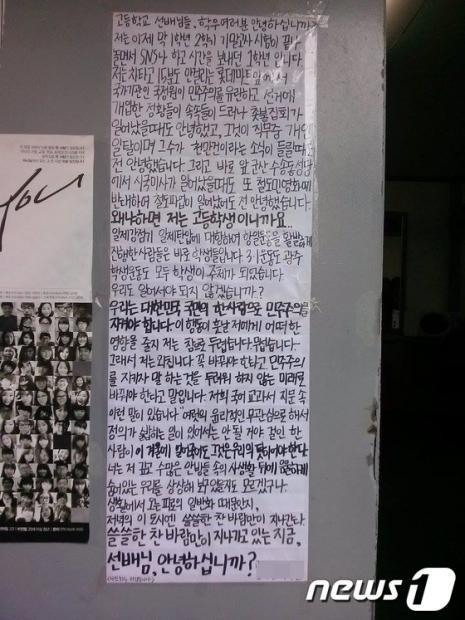 고등학교 선배님들, 학우여러분 안녕하십니까?
저는 이제 막 1학년 2학기 기말고사 시험이 끝나
놀면서 SNS나 하고 시간을 보내던 1학년 입니다.
저는 차타고 15분도 안걸리는 롯데마트 앞에서
국가기관인 국정원이 민주주의를 유린하고 선거에
개입한 정황들이 속속들이 드러나 촛불집회가
일어났을때도 안녕했고, 그것이 직무중 개인
일탈이며 그 수가 천만건이라는 소식이 들릴때도
전 안녕했습니다. 그리고 바로 앞 군산 수송동성당
에서 시국미사가 일어났을때도 또 철도민영화에
반대하여 철도파업이 일어났어도 전 안녕했습니다.
왜냐하면 저는 고등학생이니까요..
일제강점기 일제탄압에 대항하여 항일운동을 활발하게
진행한 사람들은 바로 학생들입니다 3·1운동도 광주
학생운동도 모두 학생이 주체가 되었습니다
우리도 일어서야 되지 않겠습니까?
우리는 대한민국 국민의 한사람으로 민주주의를
지켜야 합니다. 이 행동이 훗날 저에게 어떠한
영향을 줄지 저는 참으로 두렵습니다. 무섭습니다.
그래서 저는 외칩니다. 꼭 바꿔야 한다고. 민주주의
를 지키자 말 하는 것을 두려워 하지 않는 미래로
바꿔야 한다고 말입니다. 저희 국어 교과서 지문 속
이런 말이 있습니다
정의가 짓밟히는 일이 있어서는 안 될 거야 걸인 한
사람이 이 겨울에 얼어죽어도 그것은 우리의 탓이어야 한다.
너는 저 깊고 수많은 안방들 속의 사생활 뒤에 음흉하게
숨어있는 우리를 상상해 보고 있을지도 모르겠구나.
생활에서 오는 피로의 일반화 때문인지,
저녁의 이 도시엔 쓸쓸한 찬 바람만이 지나간다.
쓸쓸한 찬 바람만이 지나가고 있는 지금,
선배님, 안녕하십니까?
you
news1